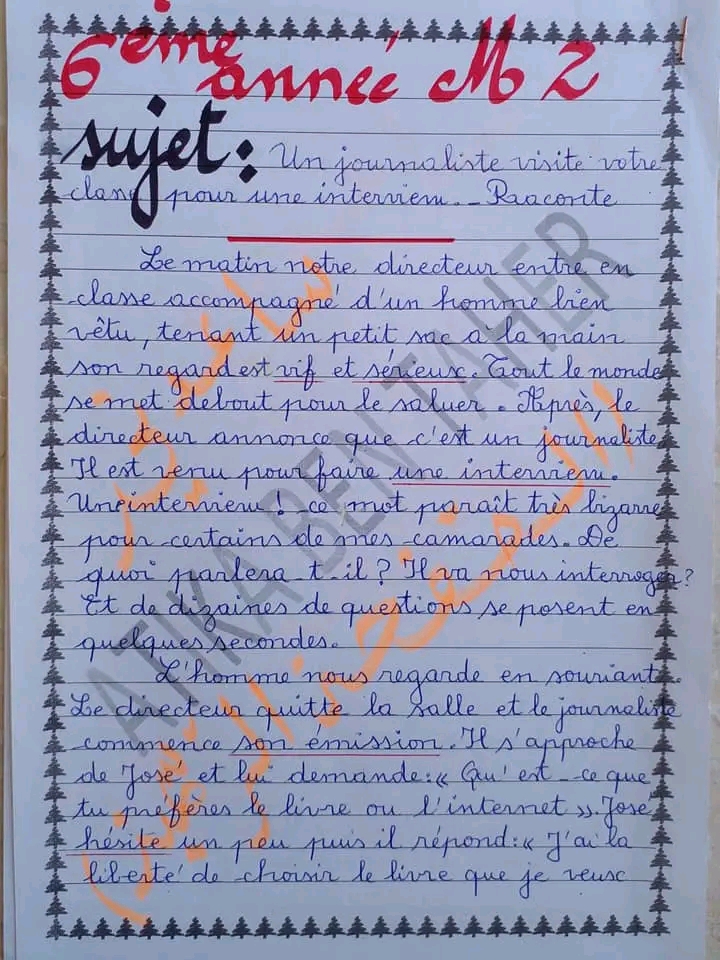 6ème
année M2
sujet: Un journaliste visite votre
classe pour une interview. - Raconte
Le matin notre directeur entre en
classe accompagné d'un homme bien
vêtu, tenant un petit sac à la main
son regard est vif et sérieux. Tout le monde
se met debout pour le saluer. Après, le
directeur annonce que c'est un journaliste
Il est venu pour faire une interview.
Une interview ! ce mot paraît très bizarre
pour certains de mes camarades. De
quoi parlera-t-il ? Il va nous interroger ?
Et de dizaines de questions se posent en
quelques secondes.
L'homme nous regarde en souriant.
Le directeur quitte la salle et le journaliste
commence son émission. Il s'approche
de José et lui demande : « Qu'est-ce que
tu préfères le livre ou l'internet ». José
hésite un peu puis il répond : « J'ai la
liberté de choisir le livre que je veux
ATIKA BEN TAHER